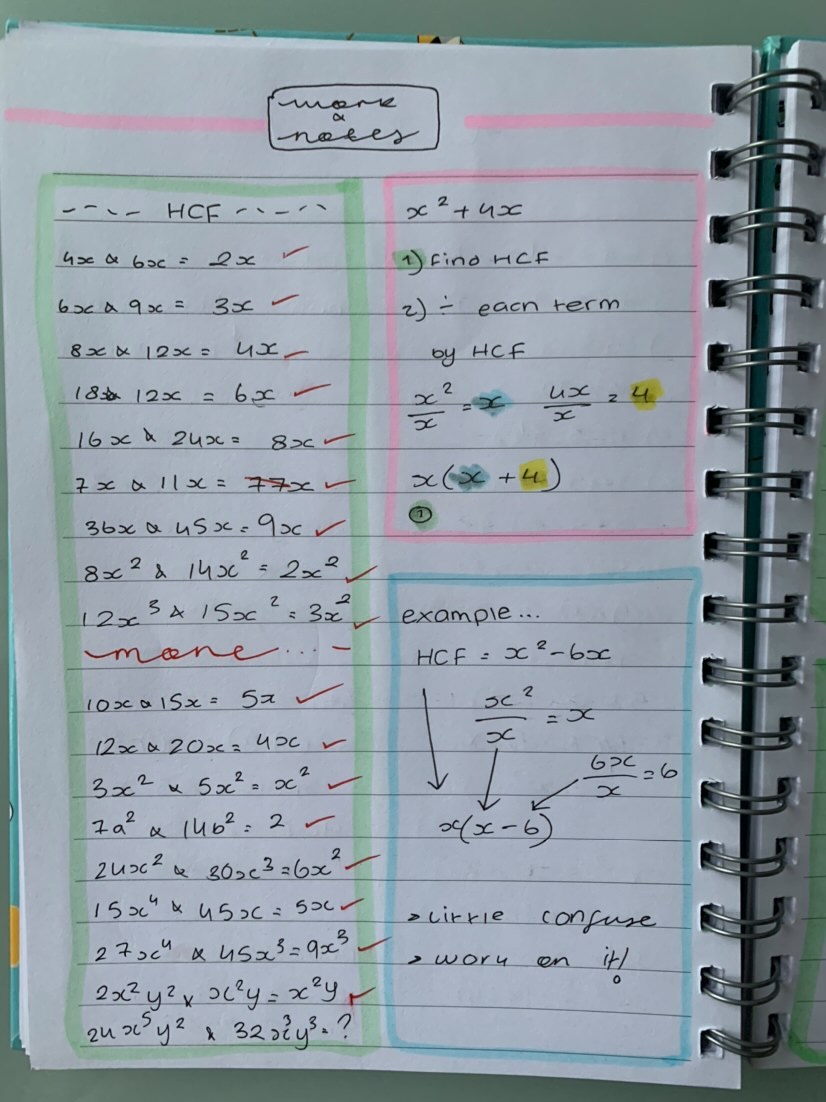 work
&
notes
HCF
4x & 6x = 2x ✓
6x & 9x = 3x ✓
8x & 12x = 4x ✓
18 & 12x = 6x ✓
16x & 24x = 8x ✓
7x & 11x = 77x ✓
36x & 45x = 9x ✓
8x² & 14x² = 2x² ✓
12x³ & 15x² = 3x² ✓
more...-
10x & 15x = 5x ✓
12x & 20x = 4x ✓
3x² & 5x² = x² ✓
7a² & 14b² = 2 ✓
24x² & 30x³ = 6x² ✓
15x⁴ & 45x = 5x ✓
27x⁴ & 45x³ = 9x³ ✓
2x²y² & x²y = x²y ✓
24x⁵y² & 32x³y³ = ?
x² + 4x
1) Find HCF
2) ÷ each term
by HCF
x²/x = x 4x/x = 4
x(x + 4)
①
example...
HCF = x² - 6x
x²/x = x
6x/x = 6
x(x - 6)
> little confuse
> work on it!